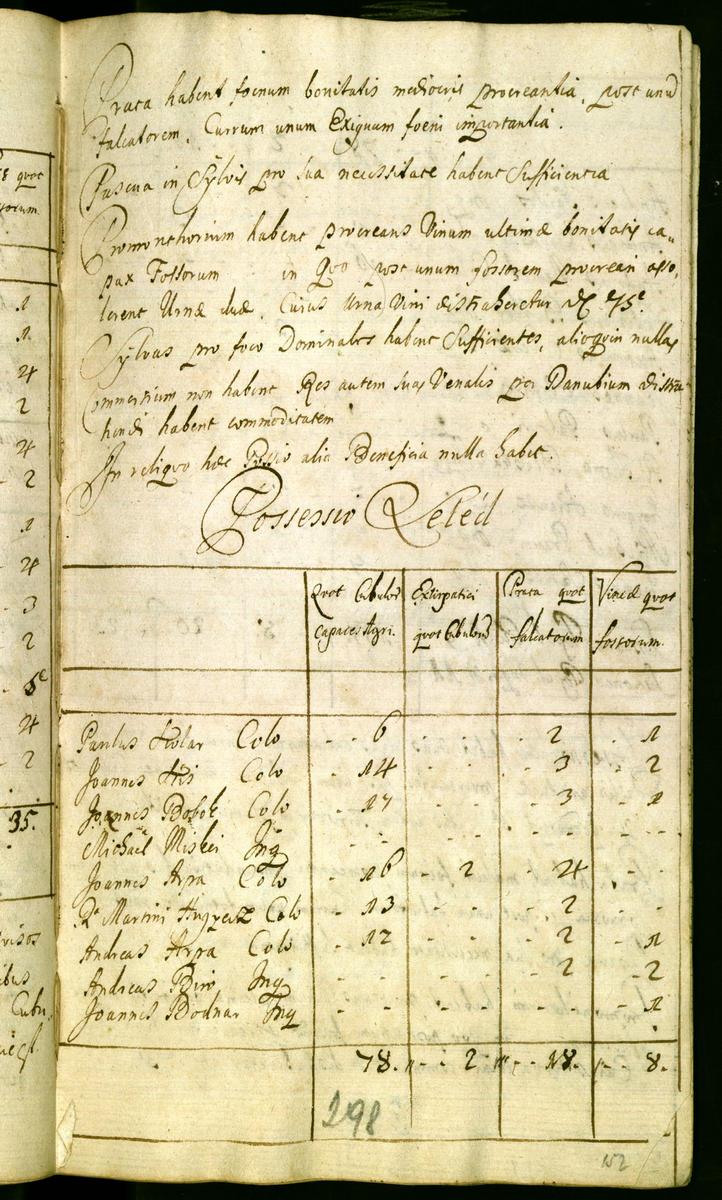 8 quot
sorum.
1
1.
4
2
4
2
1
4
3
2
5
4
2
35.
Prata habent foenum bonitatis mediocris procreantia, post unũ
falcatorem, Currum unum Exiguum foeni importantia.
Pascua in Sylvis pro sua necessitate habent Sufficientia
Promonthorium habent procreans Vinum ultimæ bonitatis ca„
pax Fossorum in Quo post unum fossorem procreari asso„
lerent Urnæ duæ, Cuius Urna Vini distraheretur 75
Sylvas pro foco Dominales habent Sufficientes, alioquin nullas
Commertium non habent Res autem suas Venales per Danubium distra„
hendi habent commoditatem
In reliquo hæc Possio alia Beneficia nulla habet.
Possessio Leléd
Quot Cubulos Extirpatici Prata quot Vineæ quot
capaces Agri. quot Cubulorũ falcatorum fossorum.
Paulus Colo - - 6 - - - - 2 - 1
Joannes Colo - 14 - - - - 3 - 2
Joannes Colo - 17 - - - - 3 - 1
Michaël Miskei Inq - - - - - - - -
Joannes Arpa Colo - 16 - 2 - - 4 - -
Martini Colo - 13 - - - - 2 - -
Andreas Arpa Colo - 12 - - - - 2 - 1
Andreas Biro Inq - - - - - - 2 - 2
Joannes Bodnar Inq - - - - - - - - 1
78. 2 18. 8.
298
152